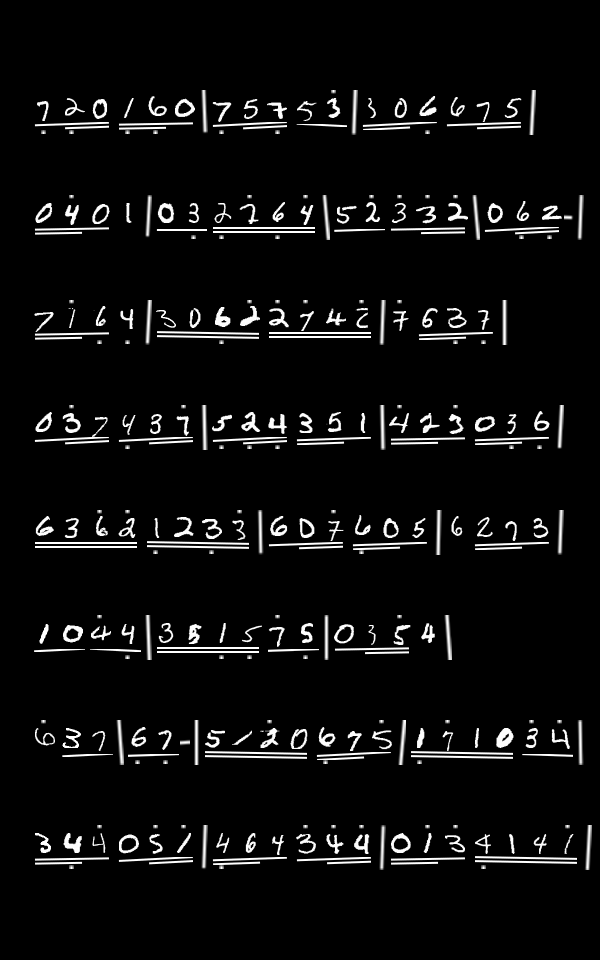 720160|75753|306675
0401|032764|52332|062-
7164|30622742|7637
037437|724351|423036
6362|1233|607605|6273
1044|351575|0354
637|67-|5120675|171034
344051|464344|0134141